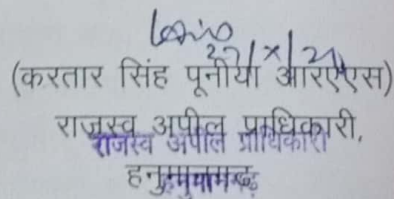 (करतार सिंह पूनीया आरएएस)
राजस्व अपील प्राधिकारी,
राजस्व अपील प्राधिकारी
हनुमानगढ़